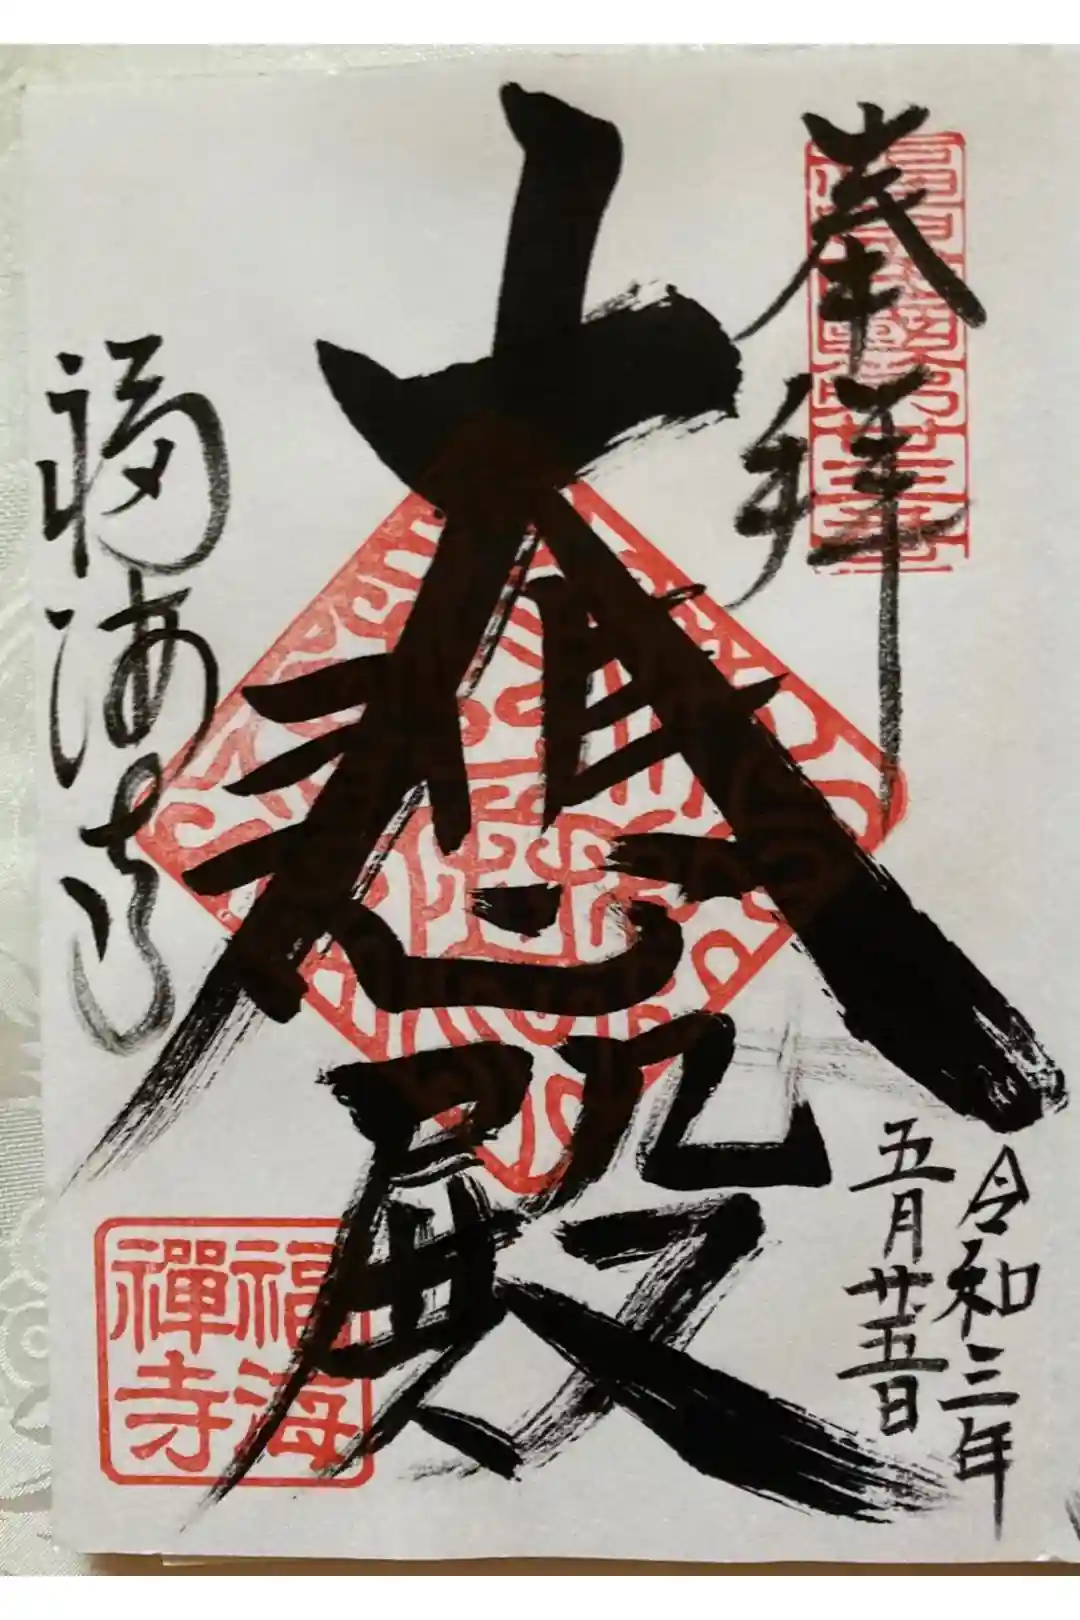 奉拝
大悲殿
福海寺
令和三年
五月廿五日
福海
禪寺